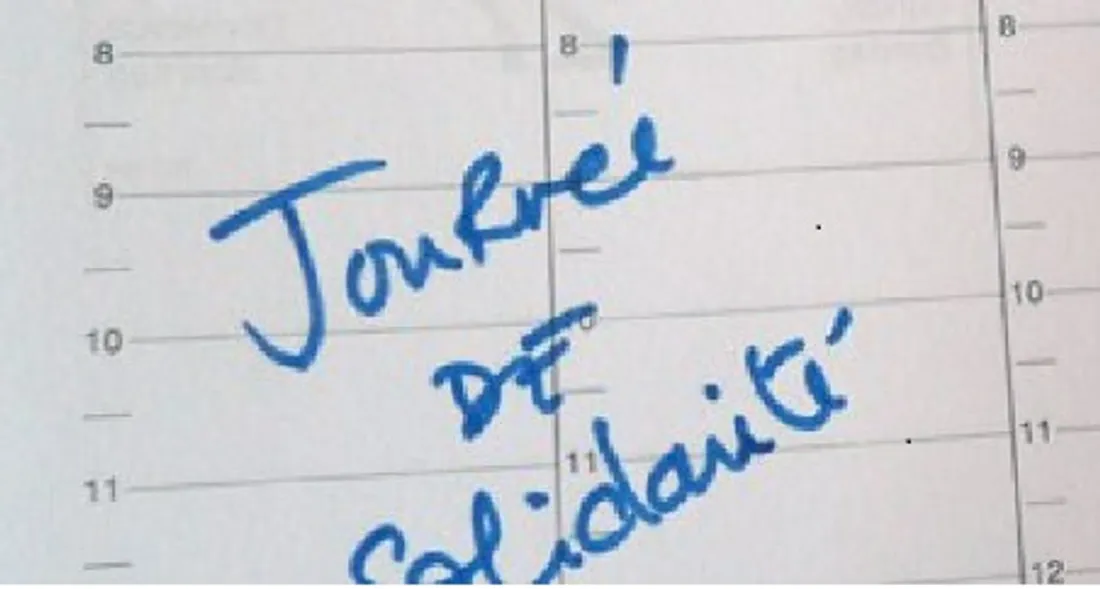 8 8 8
9 9
Journée
10 10
DE
11 11 11
Solidarité
12